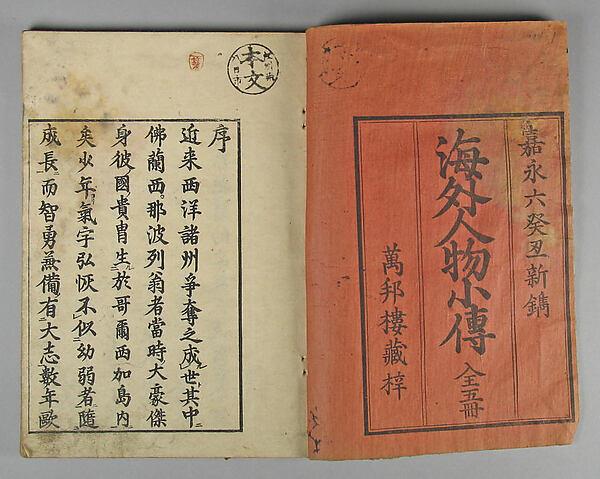 嘉永六癸丑新鐫
海外人物小傳 全五冊
萬邦樓藏梓
本文
序
近来西洋諸州爭奪之成世其中
佛蘭西那波列翁者當時大豪傑
身彼國貴冑生於哥爾西加島内
矣少年氣宇弘恢不似幼弱者隨
成長而智勇兼備有大志數年歐